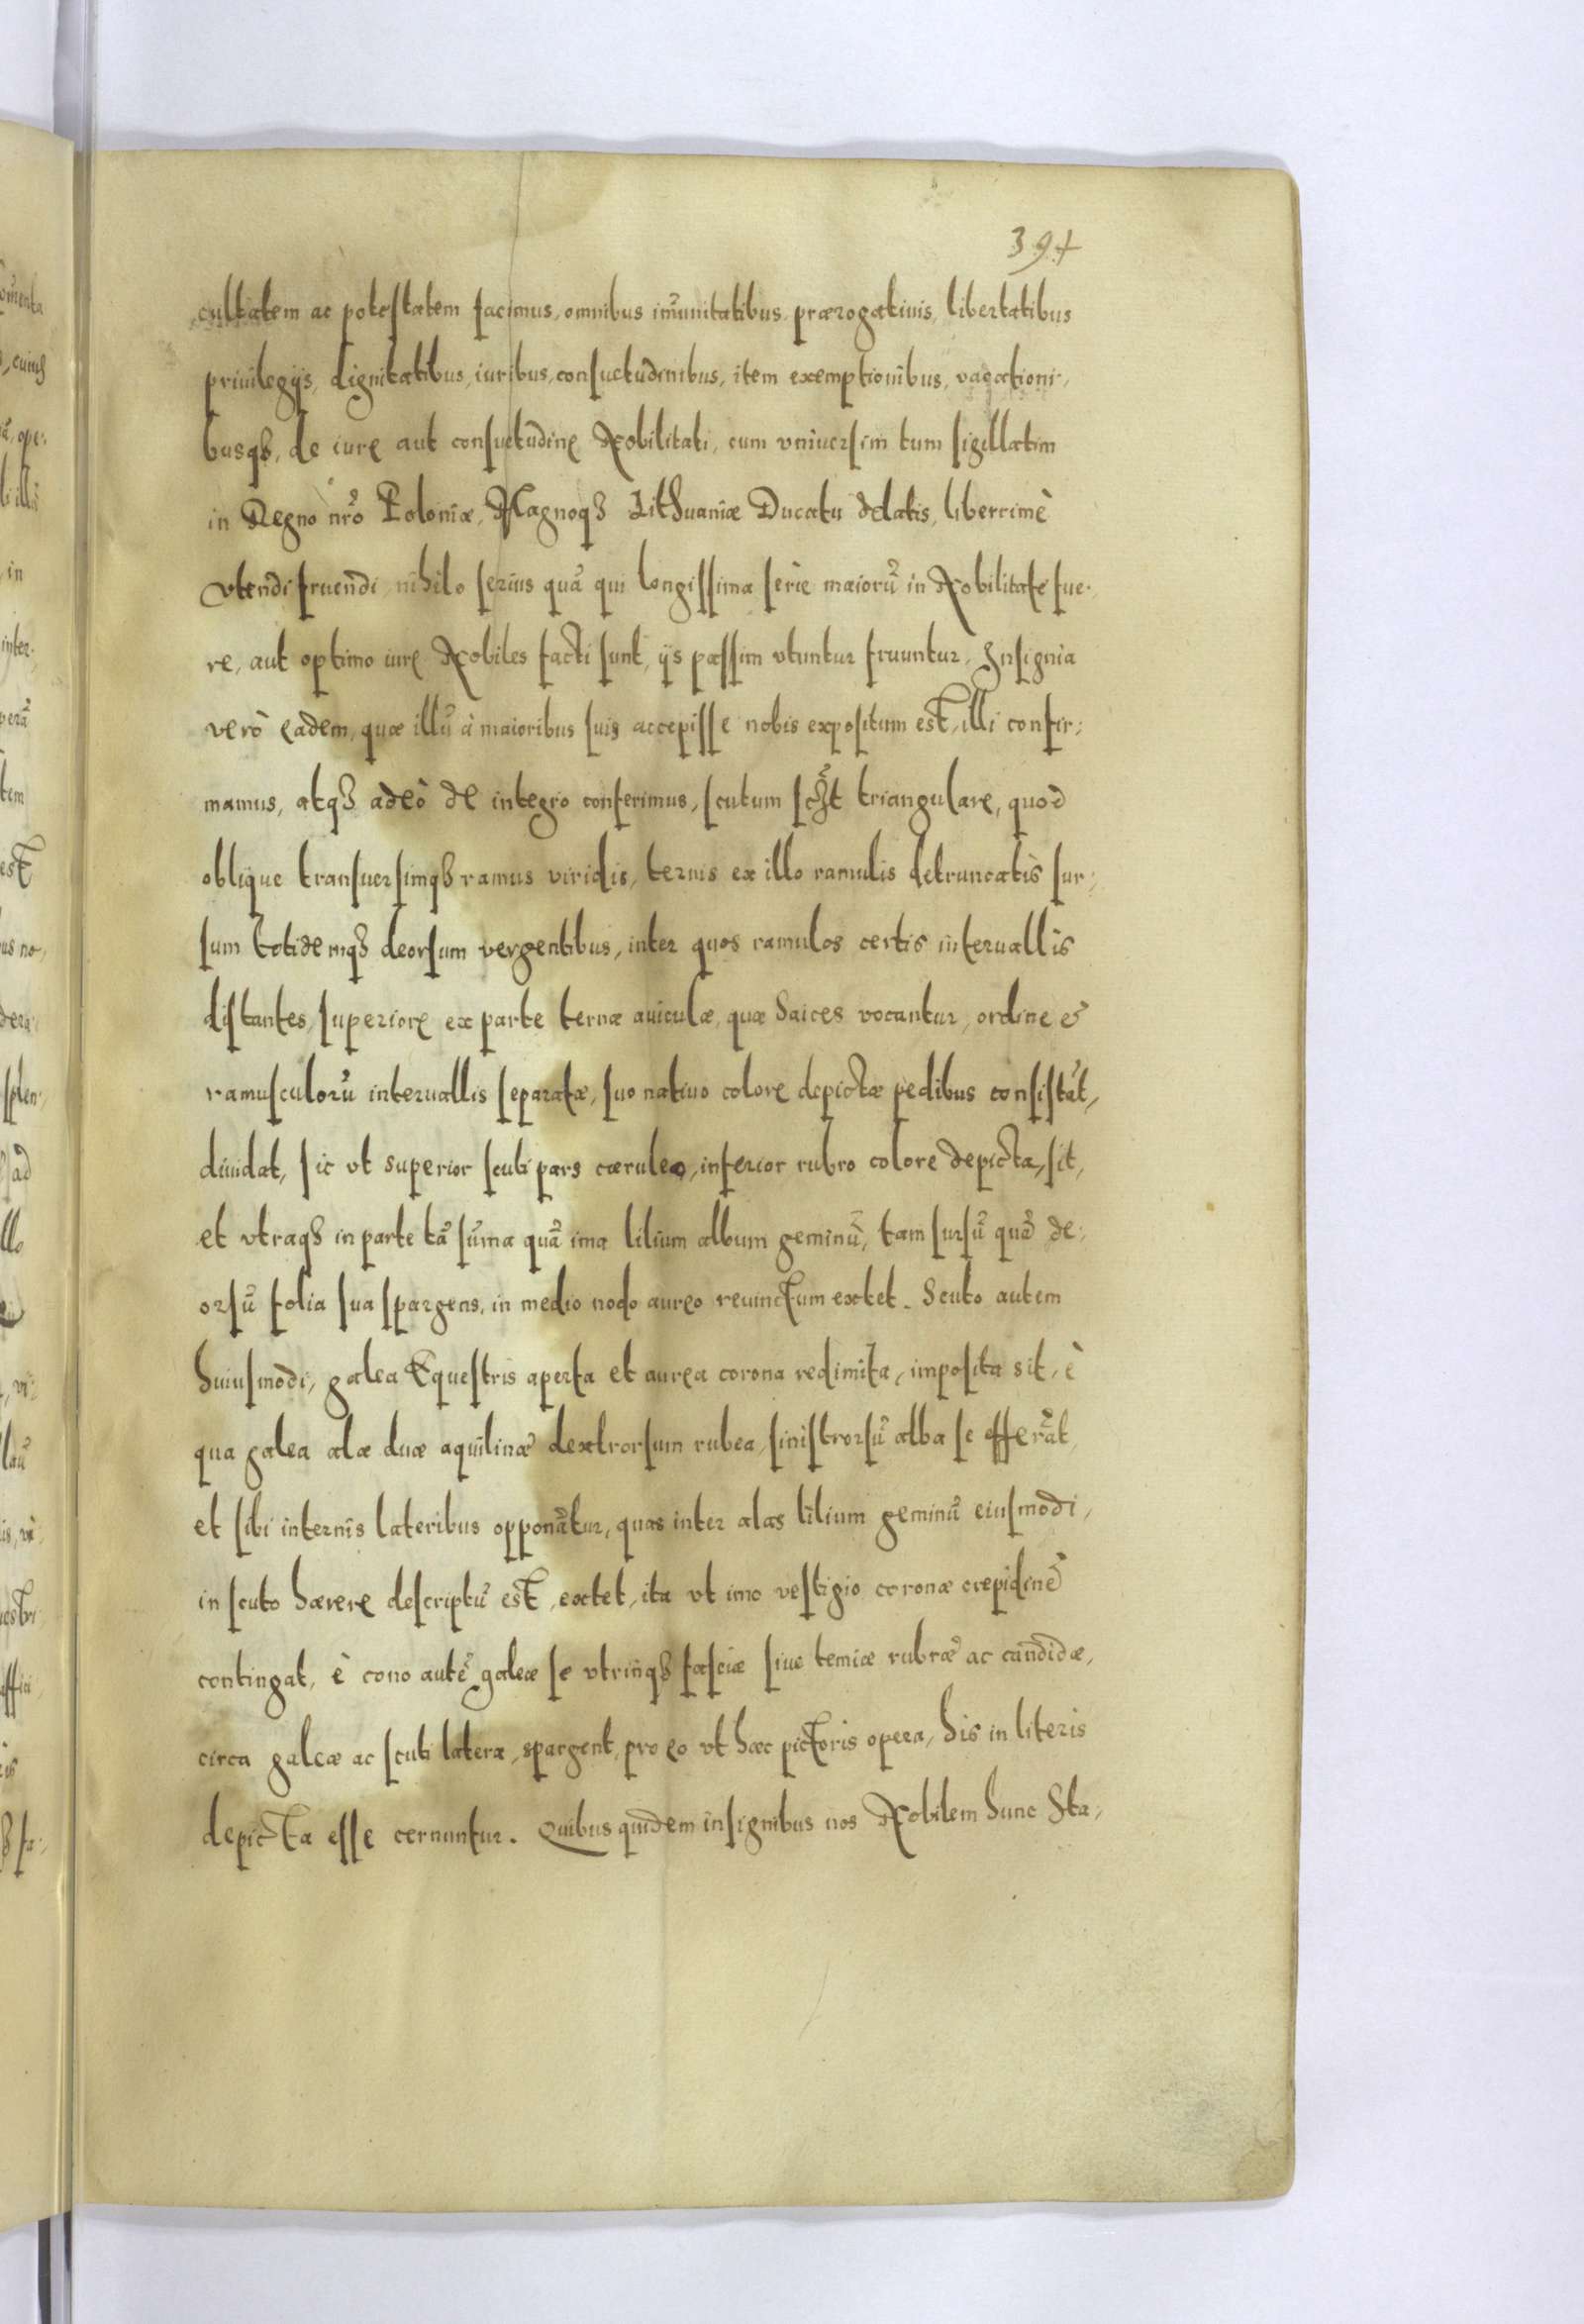 394
cultatem ac potestatem facimus, omnibus im̃unitatibus, prærogatiuis, libertatibus
priuilegijs, dignitatibus, iuribus, consuetudinibus, item exemptionibus, vacationi,
busq̃, de iure aut consuetudine Nobilitati, cum vniuersim tum sigillatim
in Regno nr̃o Poloniæ, Magnoq̃ Lithuaniæ Ducatu delatis, liberrimè
vtendi fruendi, nihilo serius quã qui longissima serie maiorũ in Nobilitate fue,
re, aut optimo iure Nobiles facti sunt, ijs passim vtuntur fruuntur. Insignia
verò eadem, quæ illũ à maioribus suis accepisse nobis expositum est, illi confir,
mamus, atq̃ adeò de integro conferimus, scutum triangulare, quod
oblique transuersimq̃ ramus viridis, ternis ex illo ramulis detruncatis sur,
sum totidemq̃ deorsum vergentibus, inter quos ramulos certis interuallis
distantes, superiore ex parte ternæ auiculæ, quæ Saices vocantur, ordine &
ramusculorũ interuallis separatæ, suo natiuo colore depictæ pedibus consistãt,
diuidat, sic vt superior scuti pars cæruleo, inferior rubro colore depicta, sit,
et vtraq̃ in parte tã sũma quã ima lilium album geminũ, tam sursũ quã de,
orsũ folia sua spargens, in medio nodo aureo reuinctum extet. Scuto autem
huiusmodi, galea Equestris aperta et aurea corona redimita, imposita sit, è
qua galea alæ duæ aquilinæ dextrorsum rubea, sinistrorsũ alba se efferãt,
et sibi internis lateribus opponãtur, quas inter alas lilium geminũ eiusmodi,
in scuto hærere descriptũ est, extet, ita vt imo vestigio coronæ crepidinẽ
contingat, è cono autẽ galeæ se vtrinq̃ fasciæ siue teniæ rubræ ac candidæ,
circa galeæ ac scuti latera, spargent, pro eo vt hæc pictoris opera, his in literis
depicta esse cernuntur. Quibus quidem insignibus nos Nobilem hunc Sta,